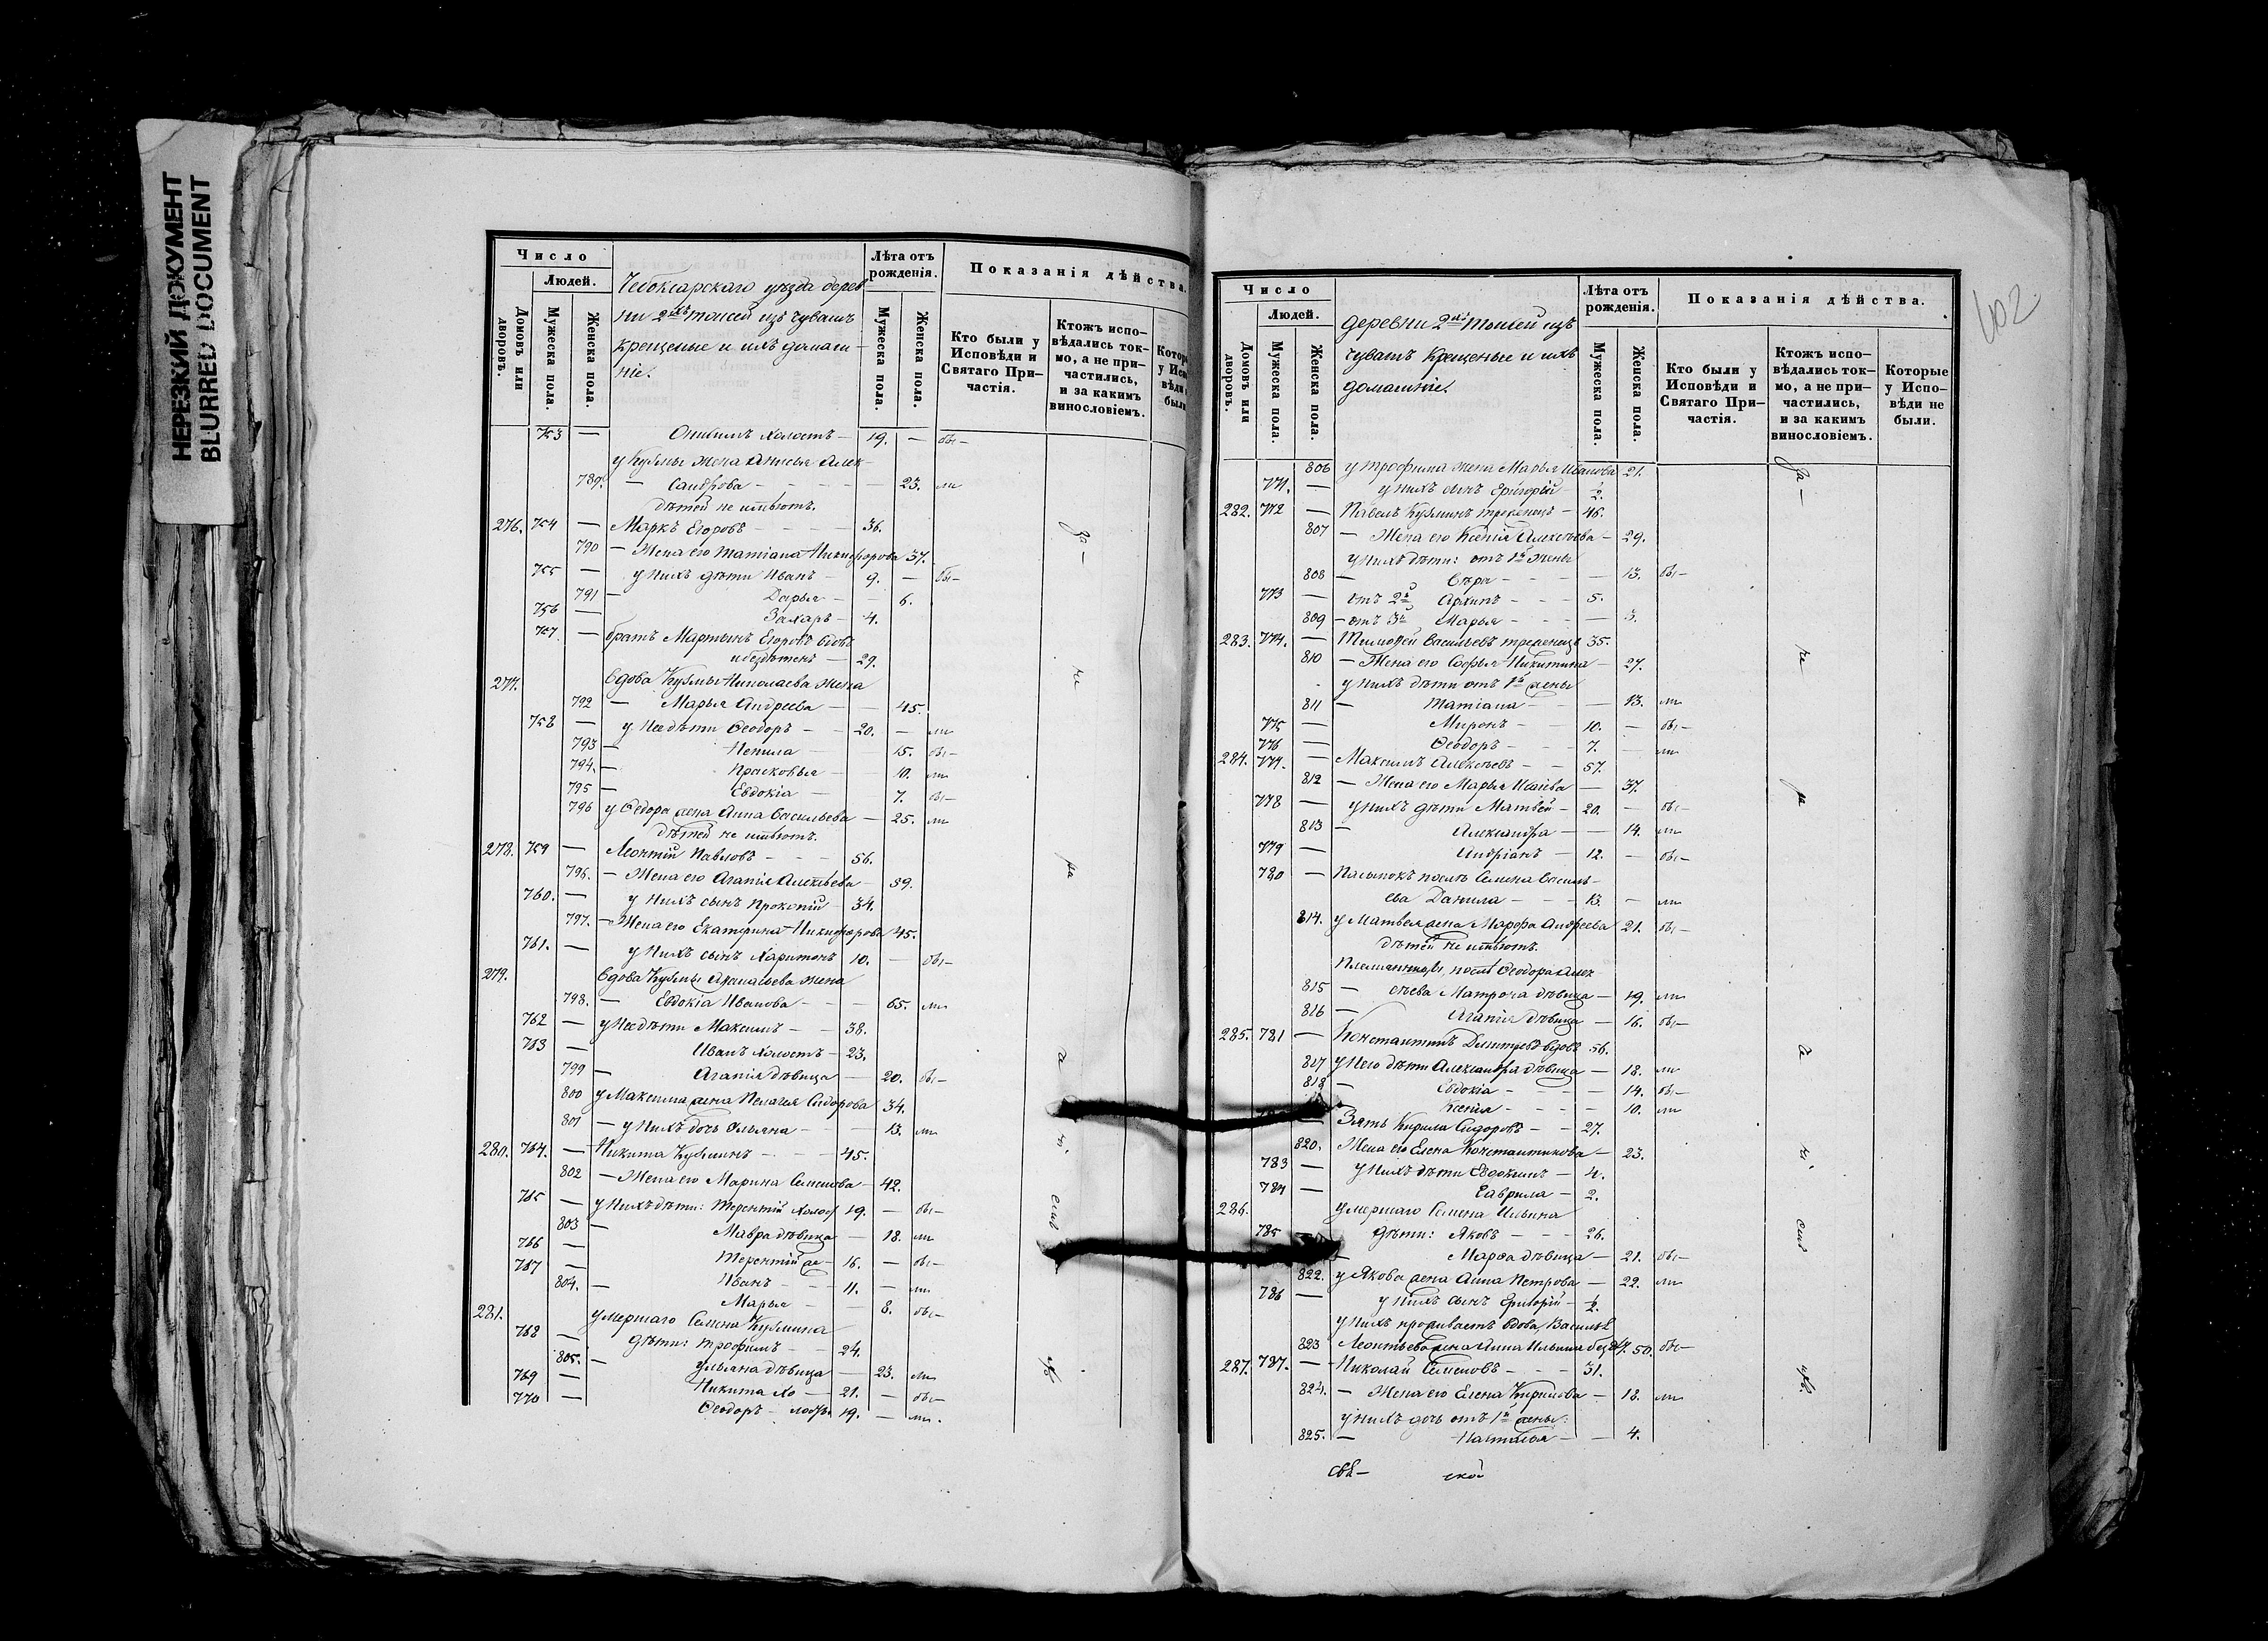 НЕРЕЗКИЙ ДОКУМЕНТ
BLURRED DOCUMENT
Число
Людей.
Домовъ или дворовъ.
Мужеска пола.
Женска пола.
Чебоксарскаго уѣзда дерев
ни 2хъ Тоисей изъ чувашъ
крещеные и ихъ домаш-
ніе.
Лѣта отъ рожденія.
Мужеска пола.
Женска пола.
Показанія дѣйства.
Кто были у Исповѣди и Святаго При-частія.
Ктожъ испо-вѣдались ток-мо, а не при-частились, и за какимъ винословіемъ.
753 — Онисимъ холостъ — 19. — бы-
у Кузмы жена Анисья Алек-
789. — сандрова — 23. ли
дѣтей не имѣютъ.
276. 754 — Маркъ Егоровъ — 36.
790 — Жена его Татіана Никифорова 37.
755 — у нихъ дѣти Иванъ — 9. — бы-
791 — Дарья — 6.
756 — Захаръ — 4.
757 — братъ Мартынъ Егоровъ вдовъ
и бездѣтенъ — 29.
277. Вдова Кузмы Николаева жена
792 — Марья Андреева — 45.
758 — у нее дѣти Ѳеодоръ — 20. — ли
793 — Ненила — 15. бы-
794. — Прасковья — 10. ли
795 — Евдокіа — 7. бы-
796 у Ѳедора жена Анна Васильева — 25. ли
дѣтей не имѣютъ.
278. 759 — Леонтій Павловъ — 56.
796. — Жена его Агапія Алексѣева — 59.
760. — у нихъ сынъ Прокопій — 34.
797. — Жена его Екатерина Никифорова 45.
761. — у нихъ сынъ Харитонъ 10. — бы-
279. Вдова Кузмы Аѳанасьева жена
798. — Евдокіа Иванова — 65. ли
762 — у нее дѣти Максимъ — 38.
763 — Иванъ холостъ — 23.
799 — Агапія дѣвица — 20. бы-
800 у Максима жена Пелагея Сидорова 34.
801 — у нихъ дочь Ульяна — 13. ли
280. 764. — Никита Кузминъ — 45.
802 — Жена его Марина Семенова — 42.
765 — у нихъ дѣти: Терентій холос 19. — бы-
803 — Мавра дѣвица — 18. ли
766 — Терентій же — 16. — бы-
767 — Иванъ — 11. — ли
804. — Марья — 8. бы-
281. умершаго Семена Кузмина
768 — дѣти: Трофимъ — 24.
805. — Ульяна дѣвица — 23. ли
769 — Никита хо — 21. — бы-
770 — Ѳеодоръ — 19. — ли.
За-
не
ра
602
Число
Людей.
Домовъ или дворовъ.
Мужеска пола.
Женска пола.
деревни 2хъ Тоисей изъ
чувашъ крещеные и ихъ
домашніе.
Лѣта отъ рожденія.
Мужеска пола.
Женска пола.
Показанія дѣйства.
Кто были у Исповѣди и Святаго При-частія.
Ктожъ испо-вѣдались ток-мо, а не при-частились, и за какимъ винословіемъ.
Которые у Испо-вѣди не были.
806 у Трофима жена Марья Иванова 21.
771. — у нихъ сынъ Григорій — ½.
282. 772 — Павелъ Кузминъ треженецъ — 46.
807 — Жена его Ксенія Алексѣева — 29.
у нихъ дѣти: отъ 1й жены
808 — Вѣра — 13. бы-
773 — отъ 2й Архипъ — 5.
809 — отъ 3й Марья — 3.
283. 774. — Тимоѳей Васильевъ треженецъ 35.
810 — Жена его Софья Никитина — 27.
у нихъ дѣти отъ 1й жены
811 — Татіана — 13. ли
775 — Миронъ — 10. — бы-
776 — Ѳеодоръ — 7. — ли
284. 777. — Максимъ Алексѣевъ — 57.
812 — Жена его Марья Исаева — 37.
778 — у нихъ дѣти Матвей — 20. — бы-
813 — Александра — 14. ли
779 — Андріанъ — 12. — бы-
780 — Пасынокъ послѣ Семена Василь-
ева Данила — 13. — ли
814. у Матвея жена Марѳа Андреева 21. бы-
дѣтей не имѣютъ.
Племянницы, послѣ Ѳеодора Алек-
815 — сѣева Матрона дѣвица — 19. ли
816 — Агапія дѣвица — 16. бы-
285. 781 — Константинъ Дмитревъ вдовъ 56.
817 у него дѣти Александра дѣвица — 18. ли
818 — Евдокіа — 14. бы-
Ксенія — 10. ли
Зять Кирила Сидоровъ — 27.
820. Жена его Елена Константинова — 23.
783 — у нихъ дѣти Евдокимъ — 4.
784 — Гаврила — 2.
286. умершаго Семена Ильина
785 — дѣти: Яковъ — 26.
— Марѳа дѣвица — 21. бы-
822. у Якова жена Анна Петрова — 22. ли
786 — у нихъ сынъ Григорій — ½.
у нихъ проживаетъ вдова, Василья
823 Леонтьева жена Анна Ильина 50. бы-
287. 787. — Николай Семеновъ — 31.
824. — Жена его Елена Кирилова — 18. ли
у нихъ дочь отъ 1й жены:
825. — Наталья — 4.
За-
не
ра